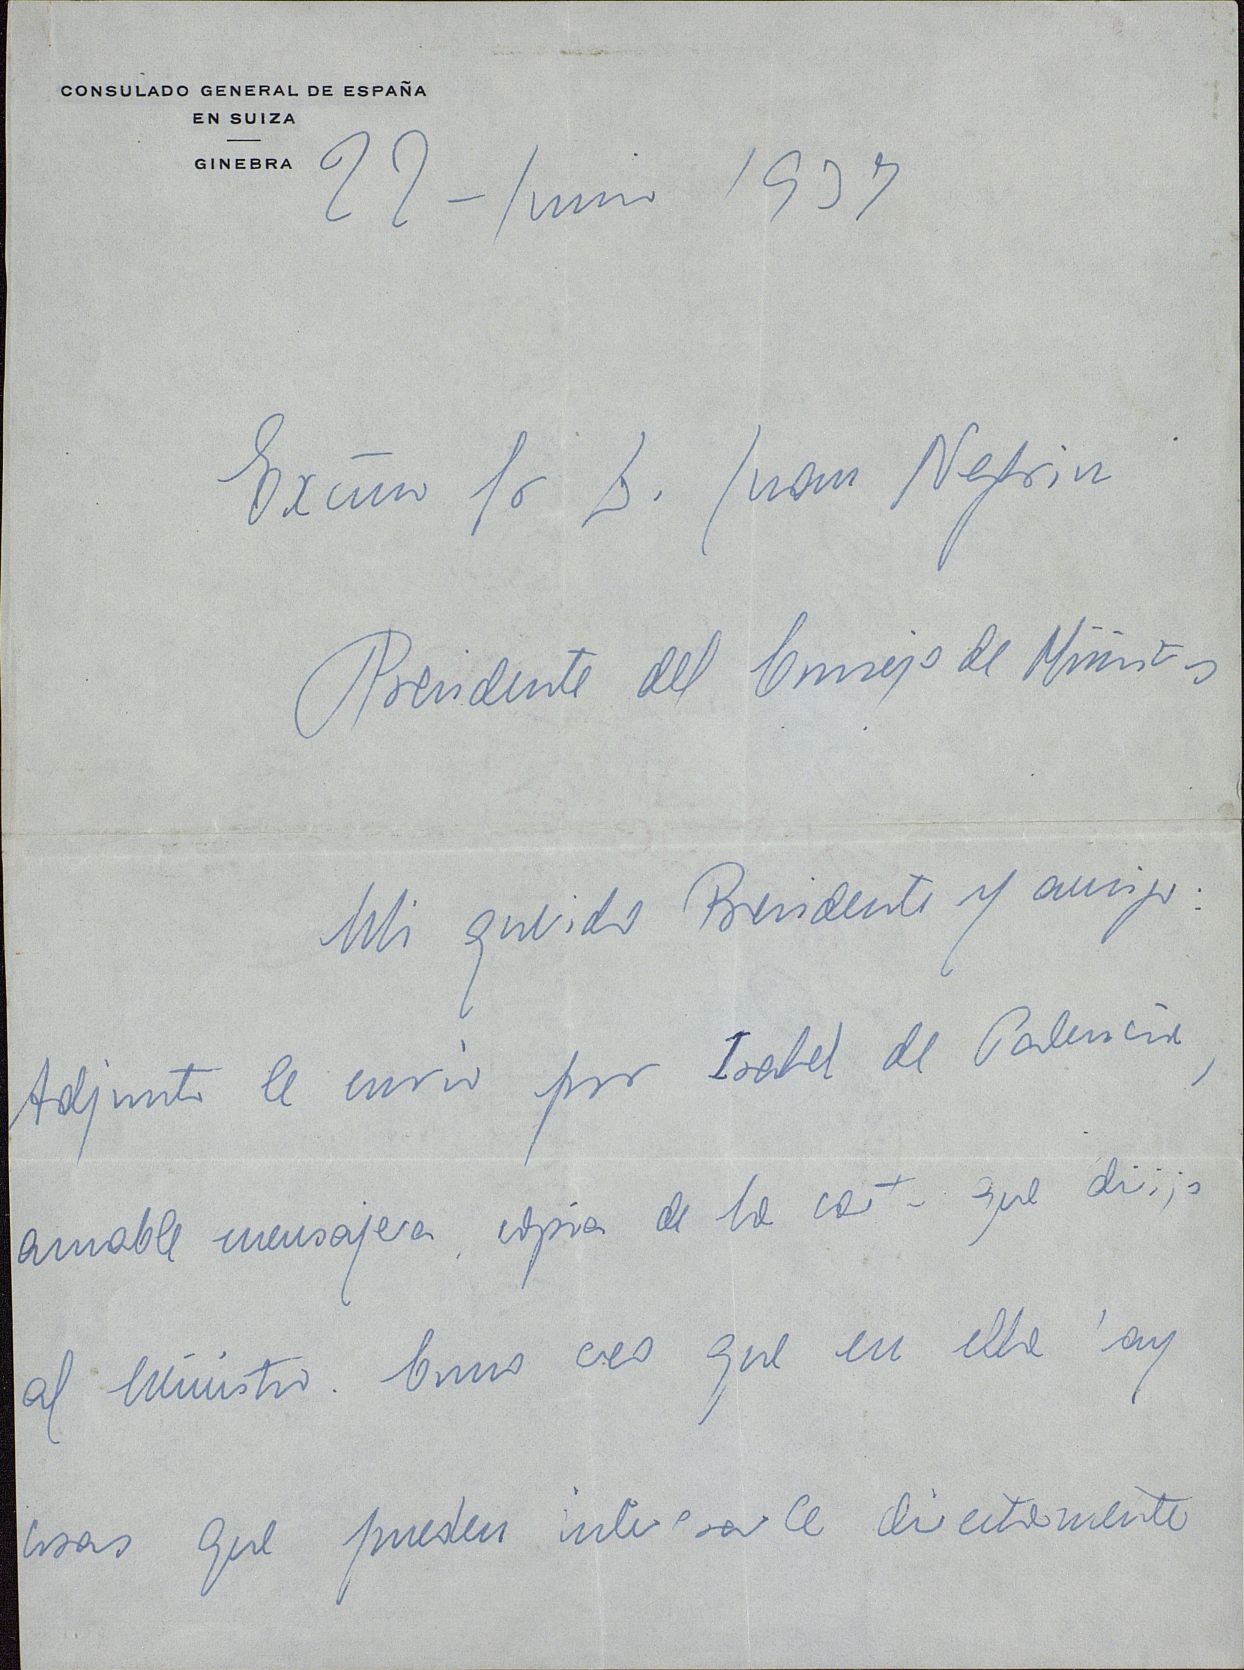 CONSULADO GENERAL DE ESPAÑA
EN SUIZA
GINEBRA
22-Junio 1937
Excmo Sr D. Juan Negrin
Presidente del Consejo de Ministros
Mi querido Presidente y amigo:
Adjunto le envio por Isabel de Palencia,
amable mensajera, copia de la carta que dirijo
al Ministro. Como creo que en ella hay
cosas que pueden interesarle directamente